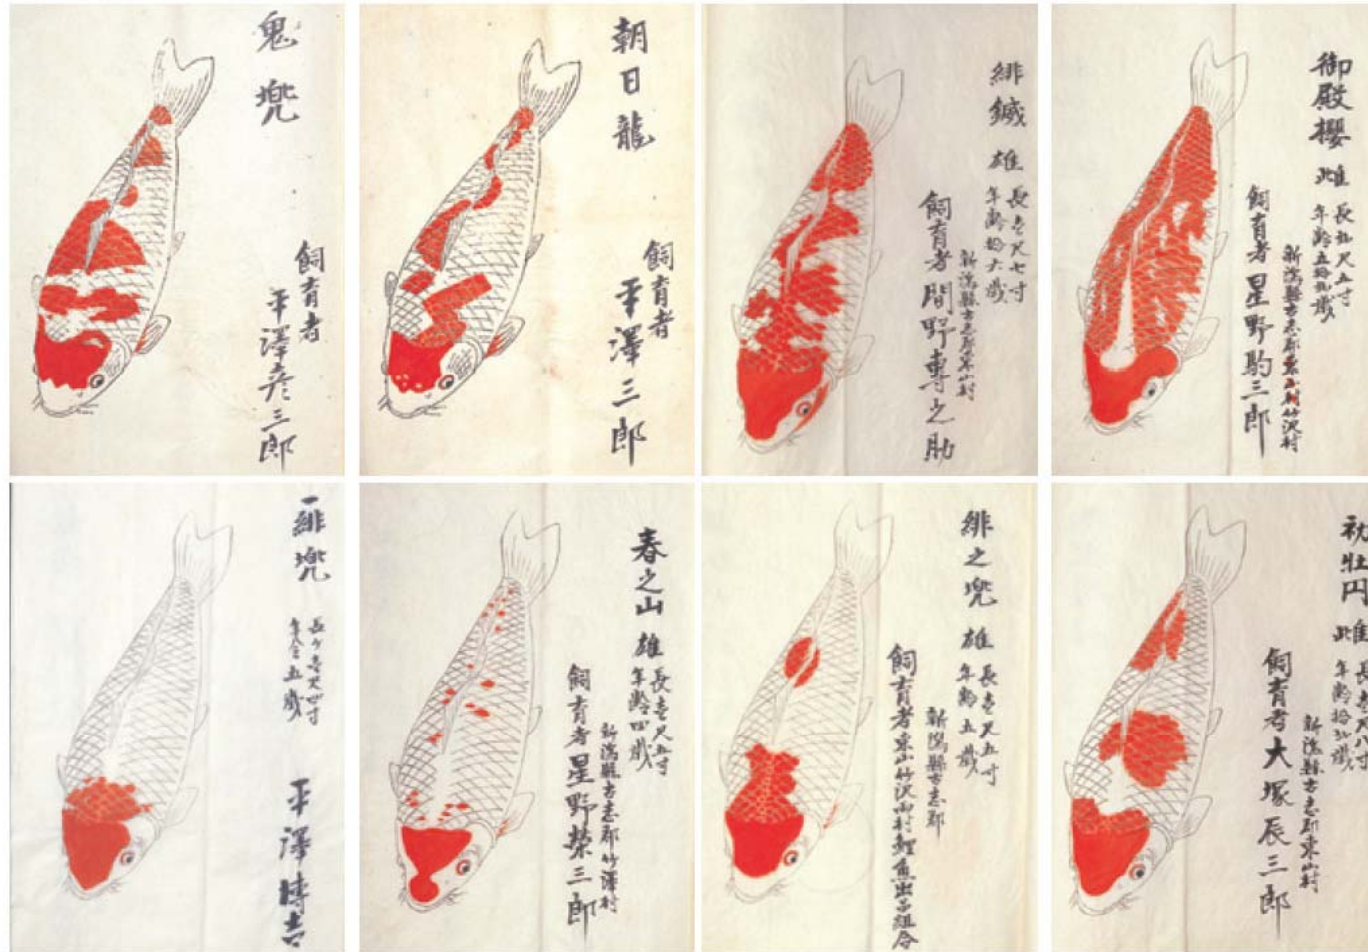 鬼兜
飼育者
平澤彦三郎
朝日龍
飼育者
平澤三郎
緋鍼 雄 長壱尺七寸
年齢拾六歳
新潟縣古志郡東山村
飼育者間野專之助
御殿櫻 雌 長弐尺五寸
年齢五拾弐歳
新潟縣古志郡竹沢村
飼育者星野駒三郎
緋兜 長サ壱尺四寸
五歳
平澤
春之山 雄 長壱尺五寸
年齢四歳
新潟縣古志郡竹澤村
飼育者星野榮三郎
緋之兜 雄 長壱尺五寸
年齢五歳
新潟縣古志郡
飼育者東山竹沢両村鯉魚出品組合
牡円 雌
年齢拾弐歳
新潟縣古志郡東山村
飼育者大塚辰三郎